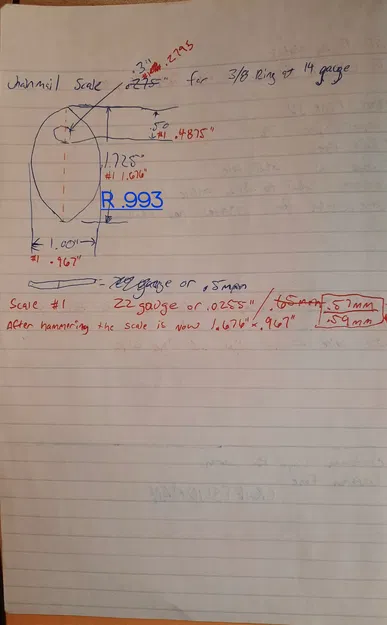 .3" .2795
Chainmail Scale .275" for 3/8 Ring at 14 gauge
.50
#1 .4875"
1.725"
#1 1.676"
R .993
1.00"
#1 .967"
gauge or .5mm
Scale #1 22 gauge or .0255" / .65mm .57mm
After hammering the scale is now 1.676" x .967" .59mm